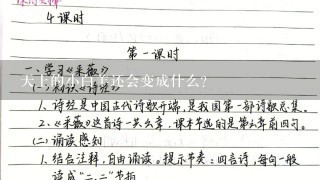 4课时
第一课时
一、学习《采薇》
天上的小白羊还会变成什么?
(一)知识《诗经》
1、诗经是中国古代诗歌开端,是我国第一部诗歌总集。
2、《采薇》这首诗一共六章,课本节选的是第六章前四句。
(二)诵读感知
1、结合注释,自由诵读。提示节奏:四言诗,每句一般
读成"二、二"节拍